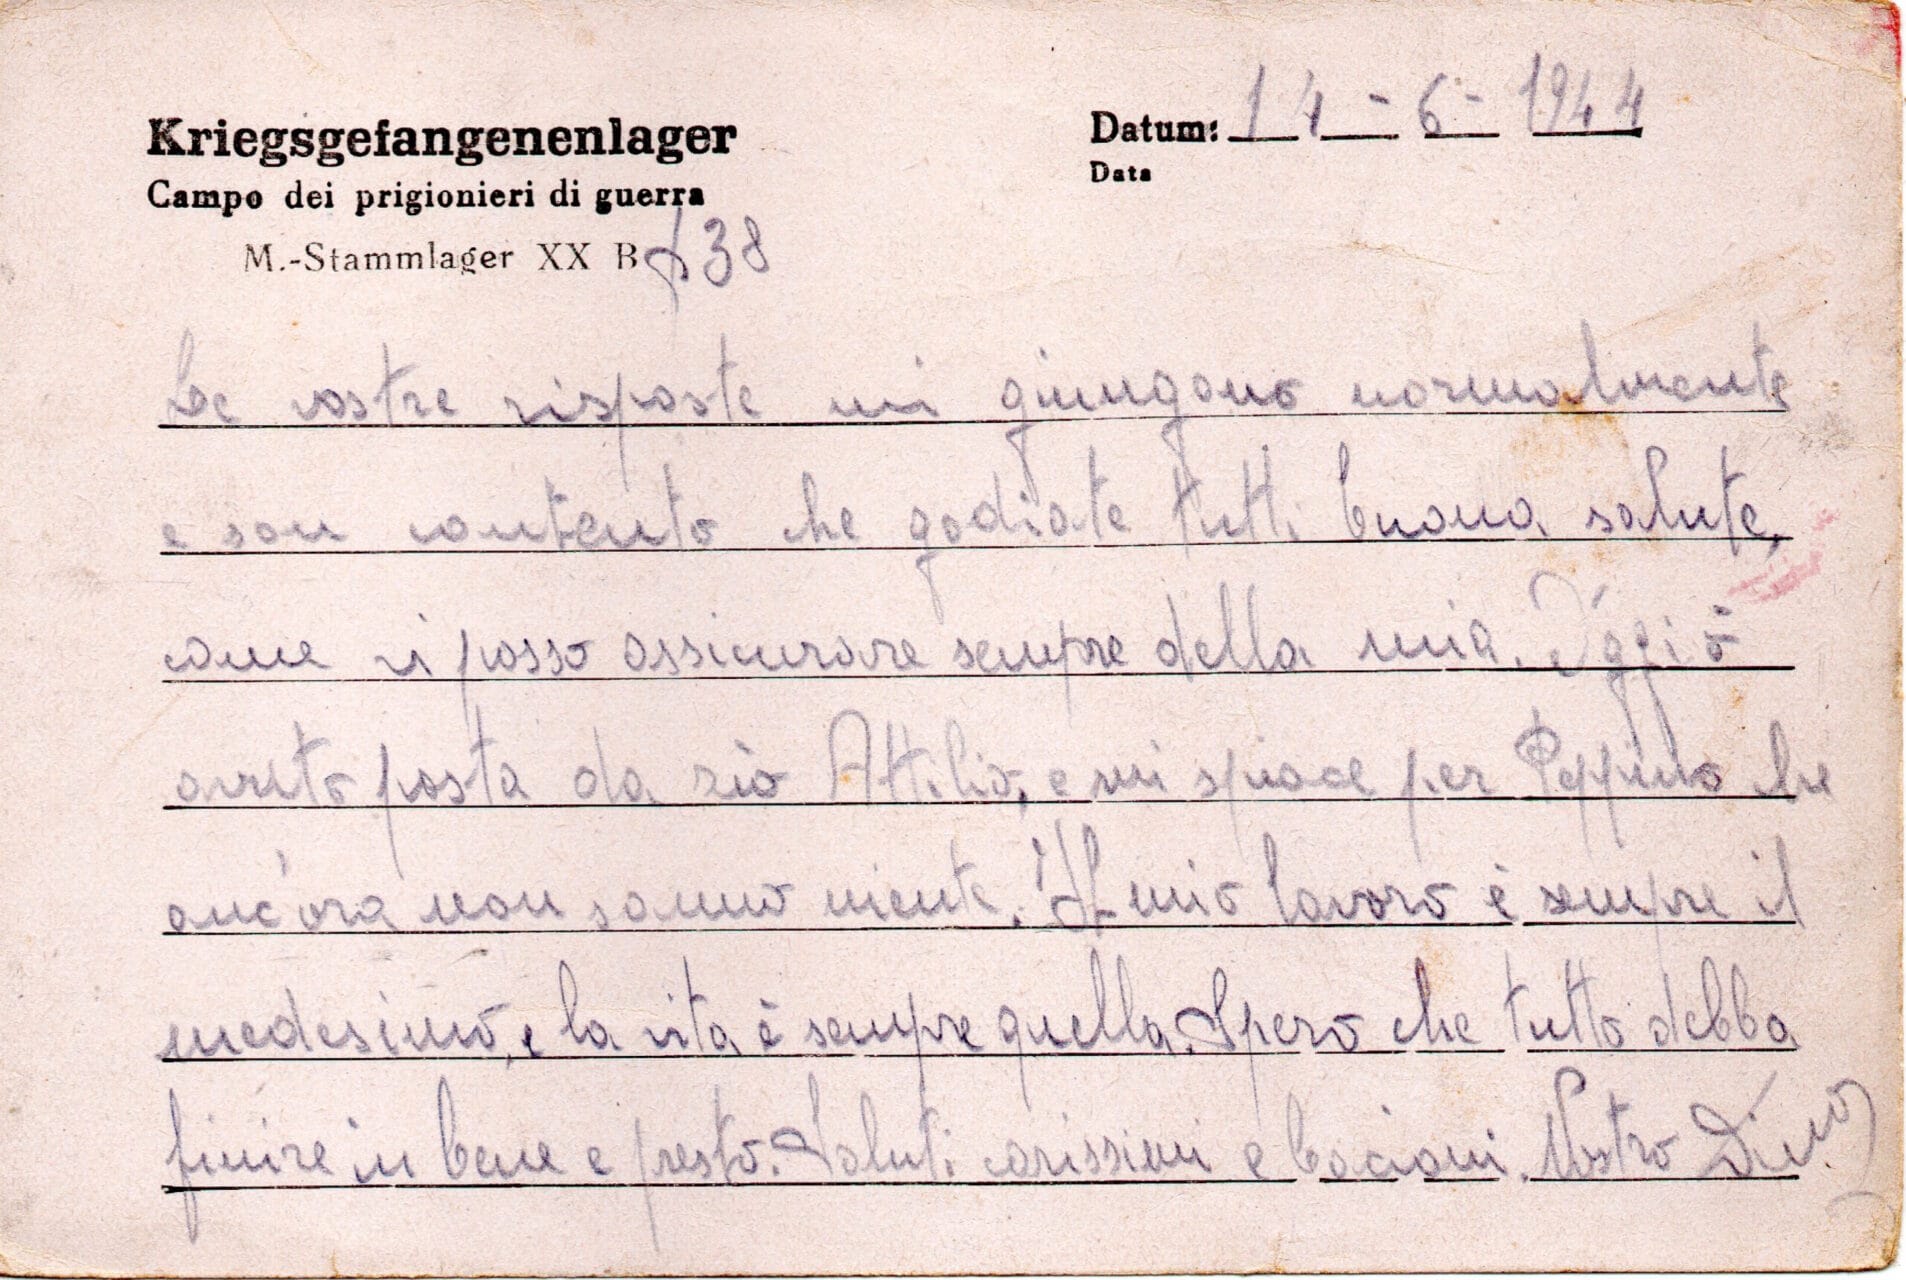 Kriegsgefangenenlager
Datum: 14-6-1944
Campo dei prigionieri di guerra
Data
M.-Stammlager XX B 138
Le vostre risposte mi giungono normalmente
e son contento che godiate tutti buona salute,
come vi posso assicurare sempre della mia. Oggi ò
avuto posta da zio Attilio, e mi spiace per Peppino che
anc'ora non sanno niente. Il mio lavoro è sempre il
medesimo, e la vita è sempre quella. Spero che tutto debba
finire in bene e presto. Saluti carissimi e bacioni. Vostro Dino